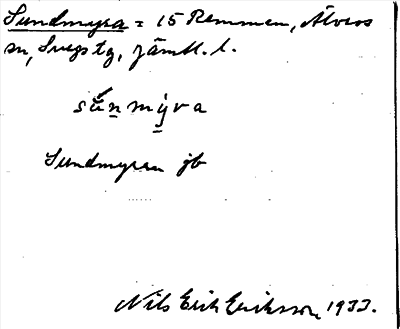 Sundmyra = 15 Remmen, Älvros
sn, Svegs tg, Jämtl. l.
sún mỳra
Sundmyran jb
Nils Erik Eriksson 1933.